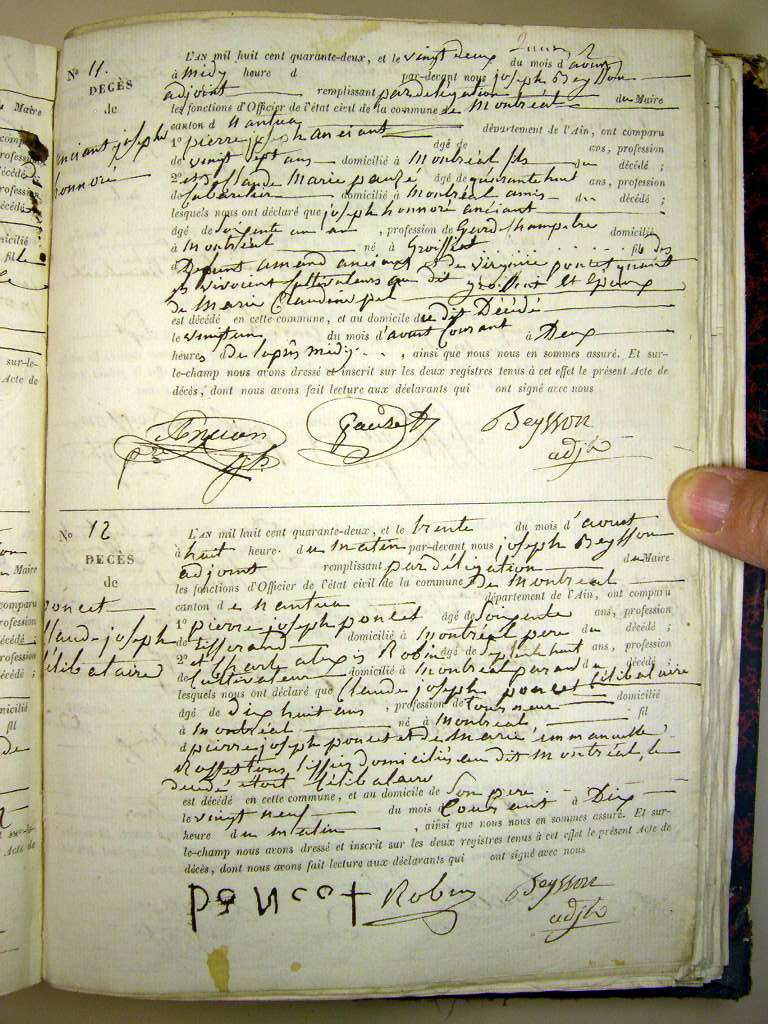 N° 11.
DECÈS
de
anciant joseph
honnoré
L'AN mil huit cent quarante-deux, et le vingt deux du mois d'aout
à midy heure d par-devant nous joseph Beysson
adjoint remplissant par délégation du Maire
les fonctions d'Officier de l'état civil de la commune de Montréal
canton de Nantua département de l'Ain, ont comparu
1° pierre joseph anciant âgé de ans, profession
de vingt sept ans domicilié à Montréal fils du décédé ;
2° et Claude Marie âgé de quarante huit ans, profession
de Cabaretier domicilié à Montréal amis du décédé ;
lesquels nous ont déclaré que joseph honnoré anciant
âgé de soixante un an, profession de Garde champetre domicilié
à Montréal né à Groissiat fils des
Defunt amand anciant et de virginie poncet quant
ils vivoient Cultivateurs au dit groissiat et Epoux
de Marie Claudine
est décédé en cette commune, et au domicile du dit Décédé
le vingt un du mois d'aout Courant à Deux
heures de lapres midy, ainsi que nous nous en sommes assuré. Et sur-
le-champ nous avons dressé et inscrit sur les deux registres tenus à cet effet le présent Acte de
décès, dont nous avons fait lecture aux déclarants qui ont signé avec nous
Ancian
Beysson
adjt
N° 12
DECÈS
de
poncet
Claude joseph
Célibataire
L'AN mil huit cent quarante-deux, et le trente du mois d'aoust
à huit heure du matin par-devant nous joseph Beysson
adjoint remplissant par délégation du Maire
les fonctions d'Officier de l'état civil de la commune De Montréal
canton de Nantua département de l'Ain, ont comparu
1° pierre joseph poncet âgé de soixante ans, profession
de tisserand domicilié à Montréal pere du décédé ;
2° et Charle alexis Robin âgé de huit ans, profession
de Cultivateur domicilié à Montréal parand du décédé ;
lesquels nous ont déclaré que Claude joseph poncet Célibataire
âgé de dix huit ans, profession de tourneur domicilié
à Montréal né à Montréal fil
d pierre joseph poncet et de Marie emmanuelle
domiciliés au dit Montréal, le
décédé etoit Célibataire
est décédé en cette commune, et au domicile de Son pere
le vingt neuf du mois Courant à Dix
heure du matin, ainsi que nous nous en sommes assuré. Et sur-
le-champ nous avons dressé et inscrit sur les deux registres tenus à cet effet le présent Acte de
décès, dont nous avons fait lecture aux déclarants qui ont signé avec nous
poncet Robin Beysson
adjt